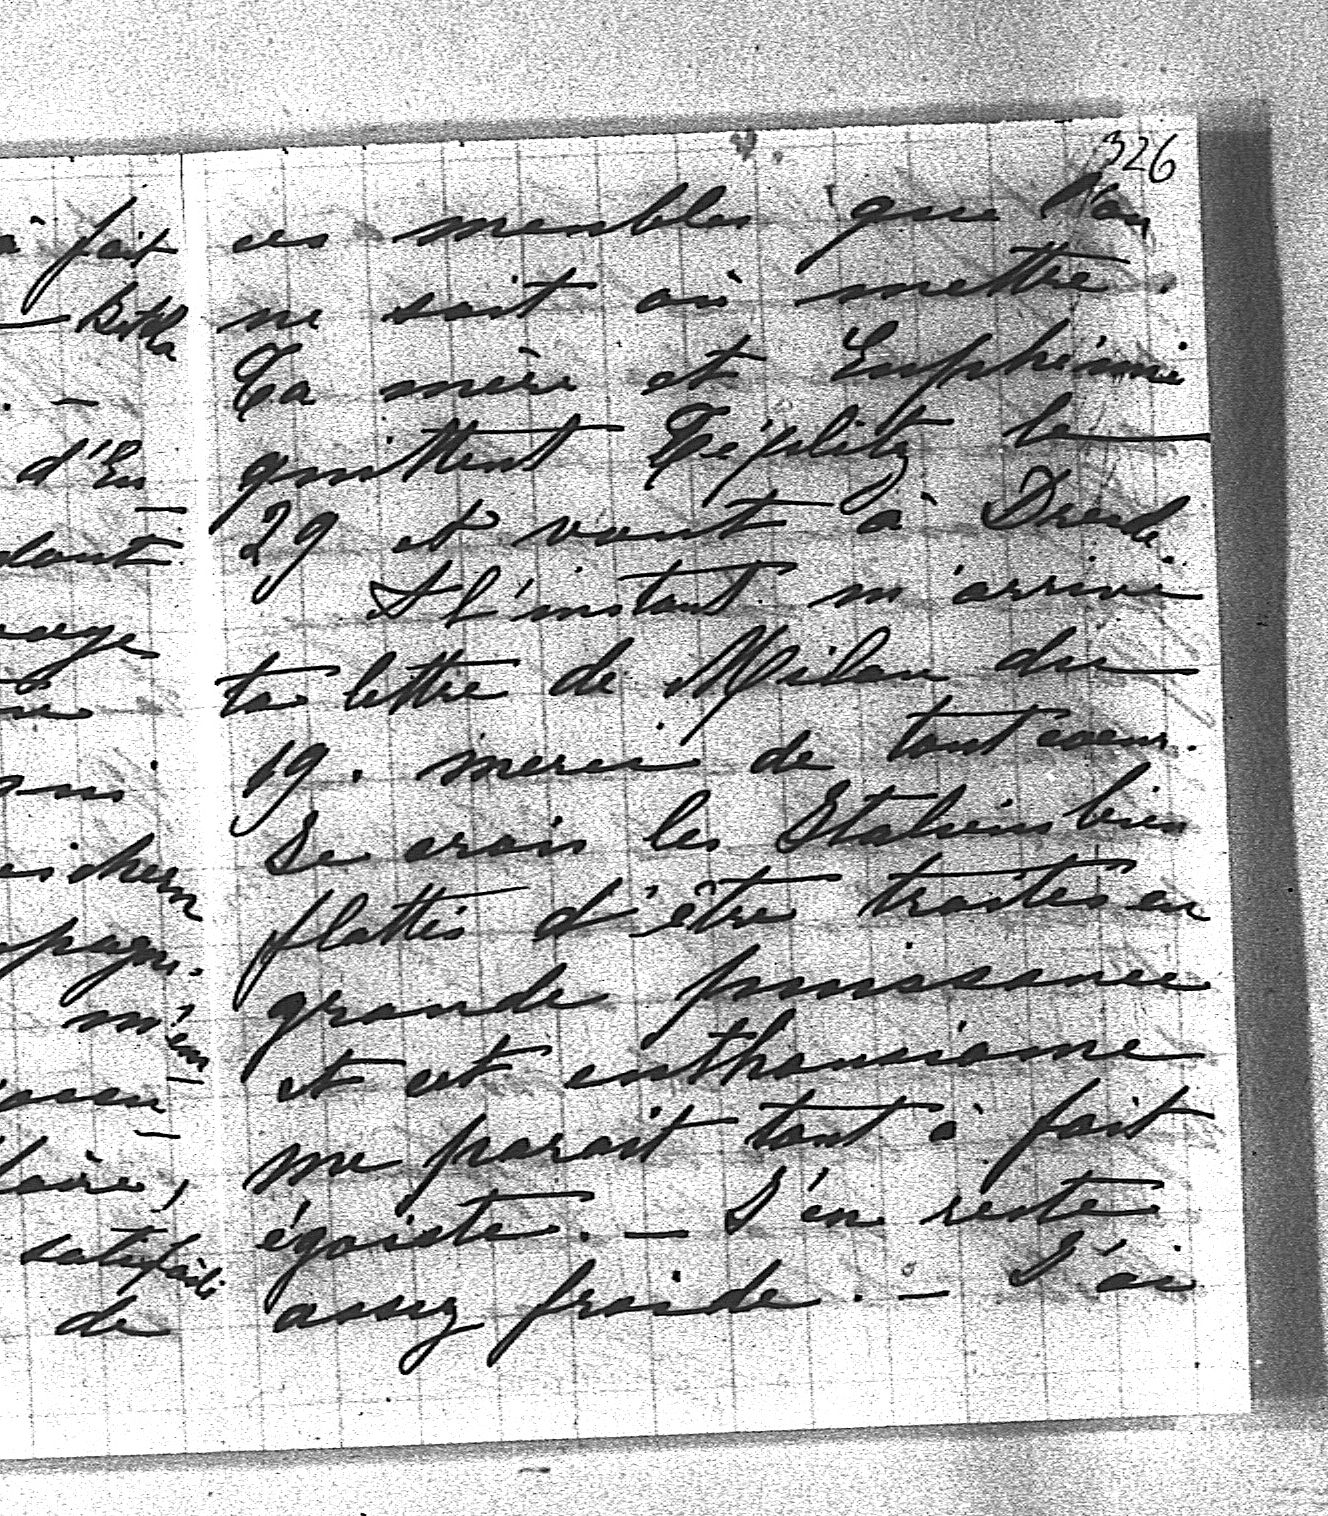 326
à fait
— Botkla
. —
d'En
—
dont
m'en
—
satisfaite
de
ces meubles que l'on
ne sait où mettre.
Ta mère et Euphémie
quittent Téplitz le
29 et vont à Dresde.
A l'instant m'arrive
ta lettre de Milan du
19. merci de tout coeur.
Je crois les Italiens bien
flattés d'être traités en
grande puissance
et cet enthousiasme
me parait tout à fait
égoiste. — J'en reste
assez froide. — J'ai